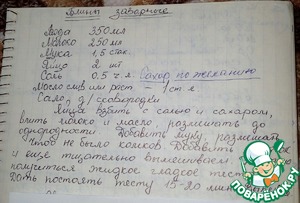 Блины заварные
Вода 350 мл
Молоко 250 мл
Мука 1,5 стак.
Яйцо 2 шт
Соль 0,5 ч. л. Сахар по желанию
Масло слив или раст - 1 ст л
Сало д/сковородки
Яйца взбить с солью и сахаром,
влить молоко и масло, размешать до
однородности. Добавить муку, размешать
чтоб не было комков. Добавить
и ещё тщательно вымешиваем.
получиться жидкое гладкое тесто
Дать постоять тесту 15-20 мин
Поварёнок.ру